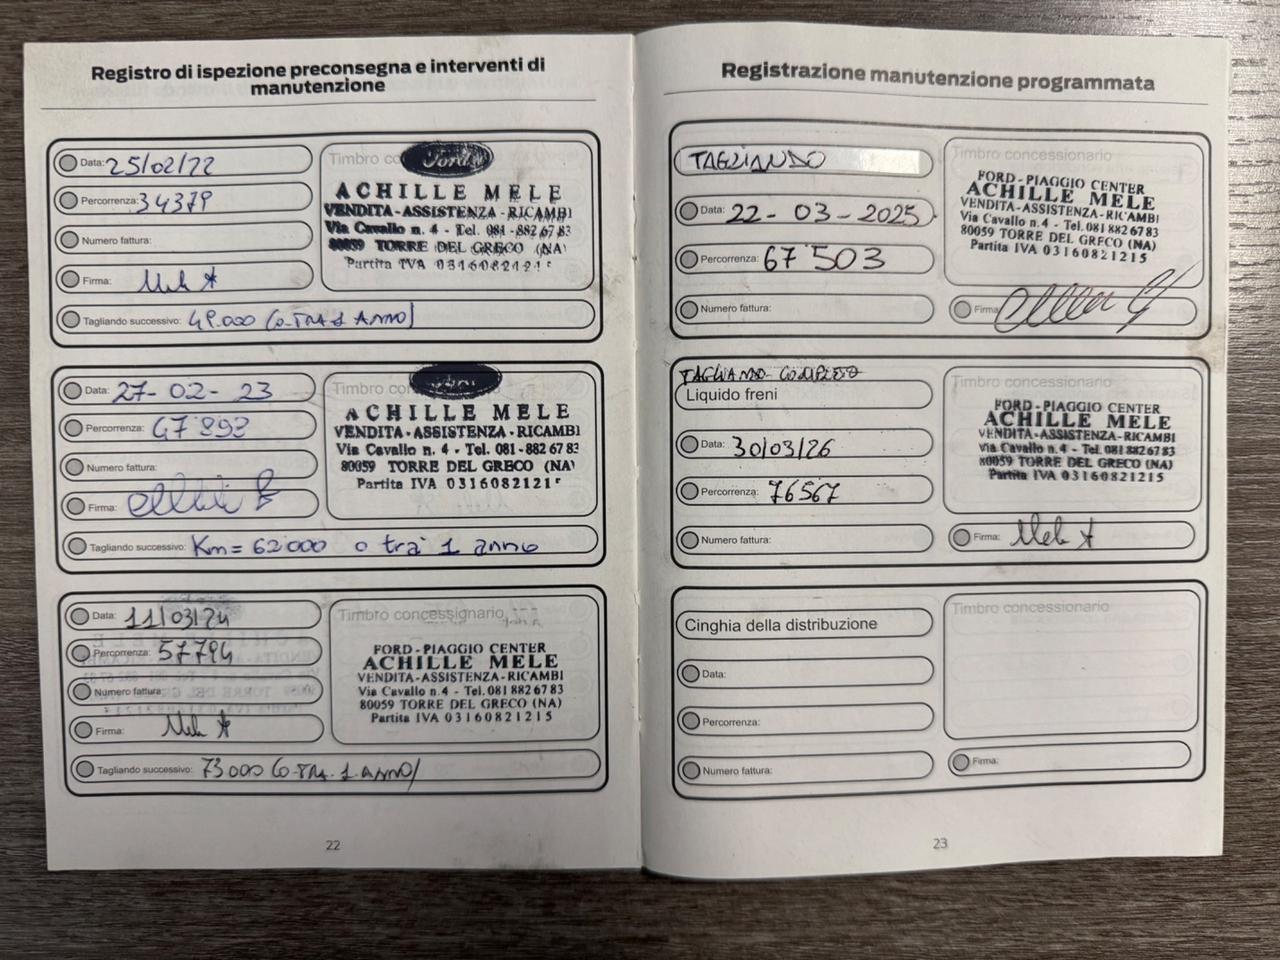 Registro di ispezione preconsegna e interventi di
manutenzione
Data: 25/02/22
Percorrenza: 34379
Numero fattura:
Firma:
Tagliando successivo: 49.000 (o TRA 1 ANNO)
Timbro co
Ford
ACHILLE MELE
VENDITA-ASSISTENZA-RICAMBI
Via Cavallo n. 4 - Tel. 081-882 67 83
80059 TORRE DEL GRECO (NA)
Partita IVA 03160821215
Data: 27-02-23
Percorrenza: 47893
Numero fattura:
Firma:
Tagliando successivo: Km= 62000 o tra 1 anno
Timbro con
Ford
ACHILLE MELE
VENDITA-ASSISTENZA-RICAMBI
Via Cavallo n. 4 - Tel. 081-882 67 83
80059 TORRE DEL GRECO (NA)
Partita IVA 03160821215
Data: 11/03/24
Percorrenza: 57794
Numero fattura:
Firma:
Tagliando successivo: 73000 (o TRA 1 ANNO)
Timbro concessionario
FORD-PIAGGIO CENTER
ACHILLE MELE
VENDITA-ASSISTENZA-RICAMBI
Via Cavallo n. 4 - Tel. 081 882 67 83
80059 TORRE DEL GRECO (NA)
Partita IVA 03160821215
22
Registrazione manutenzione programmata
TAGLIANDO
Data: 22-03-2025
Percorrenza: 67503
Numero fattura:
Timbro concessionario
FORD-PIAGGIO CENTER
ACHILLE MELE
VENDITA-ASSISTENZA-RICAMBI
Via Cavallo n. 4 - Tel. 081 882 67 83
80059 TORRE DEL GRECO (NA)
Partita IVA 03160821215
Firma
TAGLIANDO COMPLETO
Liquido freni
Data: 30/03/26
Percorrenza: 76567
Numero fattura:
Timbro concessionario
FORD-PIAGGIO CENTER
ACHILLE MELE
VENDITA-ASSISTENZA-RICAMBI
Via Cavallo n. 4 - Tel. 081 882 67 83
80059 TORRE DEL GRECO (NA)
Partita IVA 03160821215
Firma:
Cinghia della distribuzione
Data:
Percorrenza:
Numero fattura:
Timbro concessionario
Firma:
23